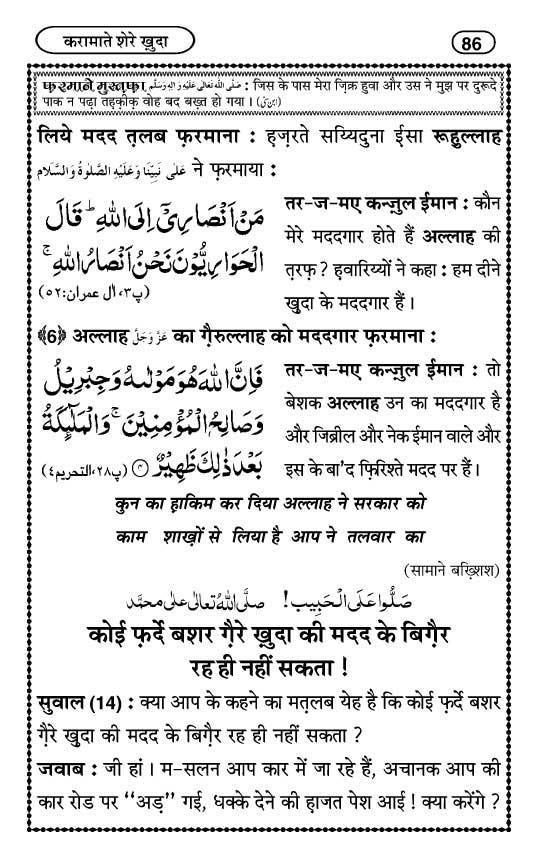 करामाते शेरे ख़ुदा
86
फ़रमाने मुस्तफ़ा صَلَّى اللهُ تَعَالٰى عَلَيْهِ وَاٰلِهٖ وَسَلَّم : जिस के पास मेरा ज़िक्र हुवा और उस ने मुझ पर दुरूदे
पाक न पढ़ा तह़क़ीक़ वोह बद बख़्त हो गया । (ابن سنی)
लिये मदद त़लब फ़रमाना : ह़ज़रते सय्यिदुना ईसा रूह़ुल्लाह
عَلٰى نَبِيِّنَا وَعَلَيْهِ الصَّلٰوةُ وَالسَّلَام ने फ़रमाया :
مَنْ اَنْصَارِیْۤ اِلَى اللّٰهِ ؕ قَالَ
الْحَوَارِیُّوْنَ نَحْنُ اَنْصَارُ اللّٰهِ ۚ
(پ۳، اٰل عمران:۵۲)
तर-ज-मए कन्ज़ुल ईमान : कौन
मेरे मददगार होते हैं अल्लाह की
त़रफ़ ? ह़वारिय्यों ने कहा : हम दीने
ख़ुदा के मददगार हैं ।
﴾6﴿ अल्लाह عَزَّوَجَلَّ का ग़ैरुल्लाह को मददगार फ़रमाना :
فَاِنَّ اللّٰهَ هُوَ مَوْلٰىهُ وَ جِبْرِیْلُ
وَ صَالِحُ الْمُؤْمِنِیْنَ ۚ وَ الْمَلٰٓىِٕكَةُ
بَعْدَ ذٰلِكَ ظَهِیْرٌ ۝۴ (پ۲۸، التحریم:۴)
तर-ज-मए कन्ज़ुल ईमान : तो
बेशक अल्लाह उन का मददगार है
और जिब्रील और नेक ईमान वाले और
इस के बा'द फ़िरिश्ते मदद पर हैं ।
कुन का ह़ाकिम कर दिया अल्लाह ने सरकार को
काम शाख़ों से लिया है आप ने तलवार का
(सामाने बख़्शिश)
صَلُّوْا عَلَى الْحَبِيْب! صَلَّى اللهُ تَعَالٰى عَلٰى مُحَمَّد
कोई फ़र्दे बशर ग़ैरे ख़ुदा की मदद के बिग़ैर
रह ही नहीं सकता !
सुवाल (14) : क्या आप के कहने का मत़लब येह है कि कोई फ़र्दे बशर
ग़ैरे ख़ुदा की मदद के बिग़ैर रह ही नहीं सकता ?
जवाब : जी हां । म-सलन आप कार में जा रहे हैं, अचानक आप की
कार रोड पर ‘‘अड़’’ गई, धक्के देने की ह़ाजत पेश आई ! क्या करेंगे ?